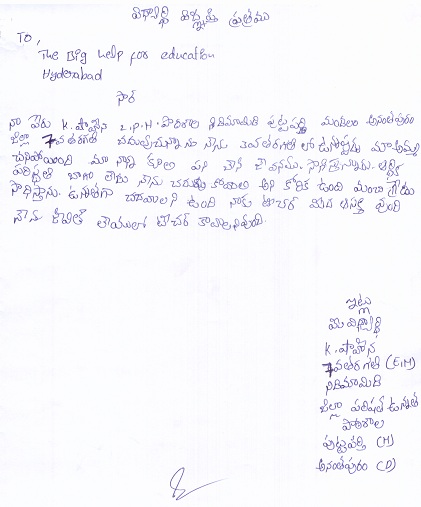 విద్యార్థి విజ్ఞప్తి పత్రము
TO,
The Big help for education
Hyderabad
సార్
నా పేరు K. షాహీన Z.P.H. పాఠశాల నిడిమామిడి పుట్టపర్తి మండలం అనంతపురం
జిల్లా 7వతరగతి చదువుచున్నాను నాను 3వతరగతి లో ఉన్నప్పుడు మా అమ్మ
చనిపోయింది మా నాన్న కూలి పని చేసి జీవనము. సాగిస్తున్నారు. ఆర్థిక
పరిస్థితి బాగా లేదు నాను చదువు కోవాలి అని కోరిక ఉంది మంచి గ్రేడు
సాధిస్తాను. ఉన్నతంగా చదవాలని ఉంది నాకు టీచర్ మీద ఆసక్తి వుంది
నాను టీచర్ కావాలనివుంది.
ఇట్లు
మీ విద్యార్థి
K. షాహీన
7వతరగతి (E.M)
నిడిమామిడి
జిల్లా పరిషత్ ఉన్నత
పాఠశాల
పుట్టపర్తి (M)
అనంతపురం (D)